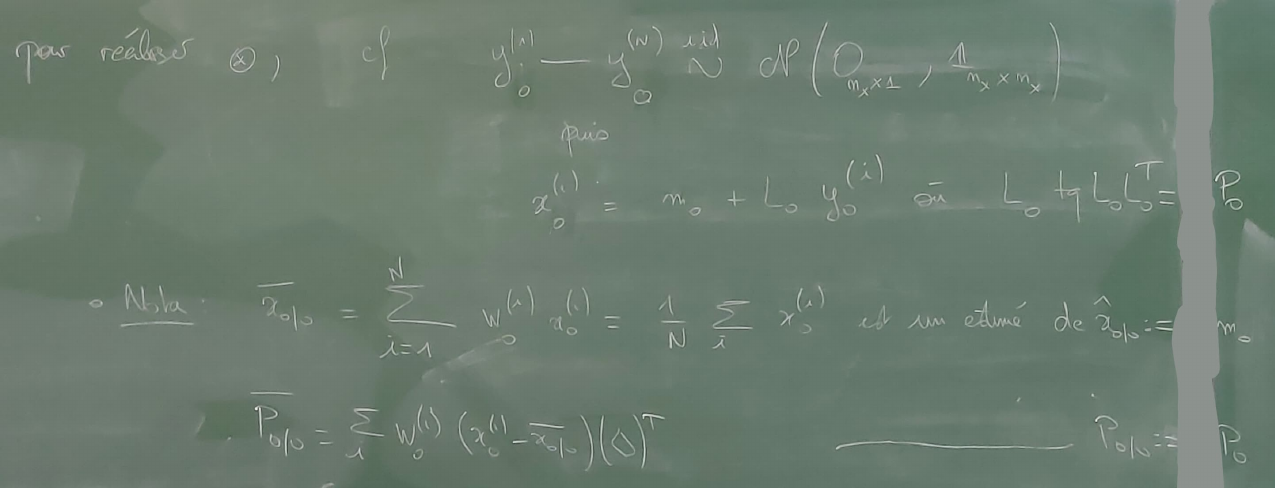 pour réaliser ⊗, cf y₀⁽¹⁾ — y₀⁽ᴺ⁾ iid ~ 𝒩(O_{n_x×1}, 𝟙_{n_x×n_x})
puis
x₀⁽ⁱ⁾ = m₀ + L₀ y₀⁽ⁱ⁾ où L₀ tq L₀L₀ᵀ = P₀
• Nota : \overline{x}_{0|0} = Σ_{i=1}^{N} w₀⁽ⁱ⁾ x₀⁽ⁱ⁾ = 1/N Σ_i x₀⁽ⁱ⁾ est un estimé de x̂_{0|0} := m₀
\overline{P}_{0|0} = Σ_i w₀⁽ⁱ⁾ (x₀⁽ⁱ⁾ − \overline{x}_{0|0})(∆)ᵀ ——— P_{0|0} := P₀